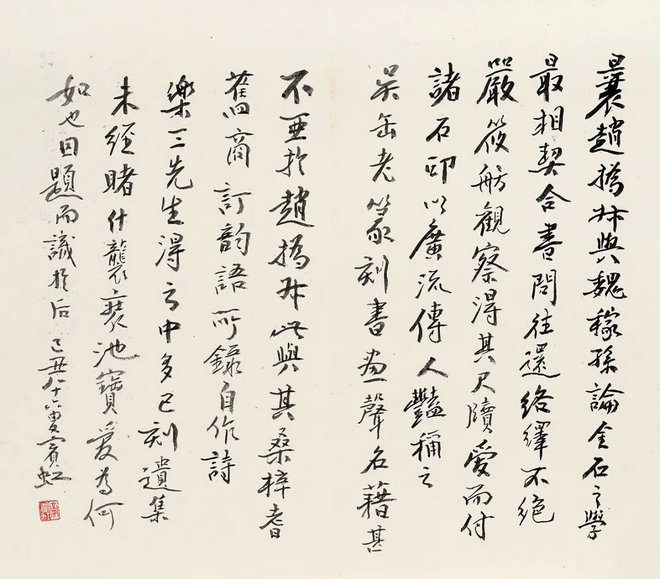 曩趙撝叔與魏稼孫論金石之學
最相契合書問往還絡繹不絕
嚴筱舫觀察得其尺牘愛而付
諸石印以廣流傳人豔稱之
吳缶老篆刻書畫聲名藉甚
不亞於趙撝叔此與其桑梓耆
舊商訂韵語所錄自作詩
樂三先生得之中多已刻遺集
未經睹什襲裝池寶愛為何
如也因題而識於后 己丑八十六叟賓虹